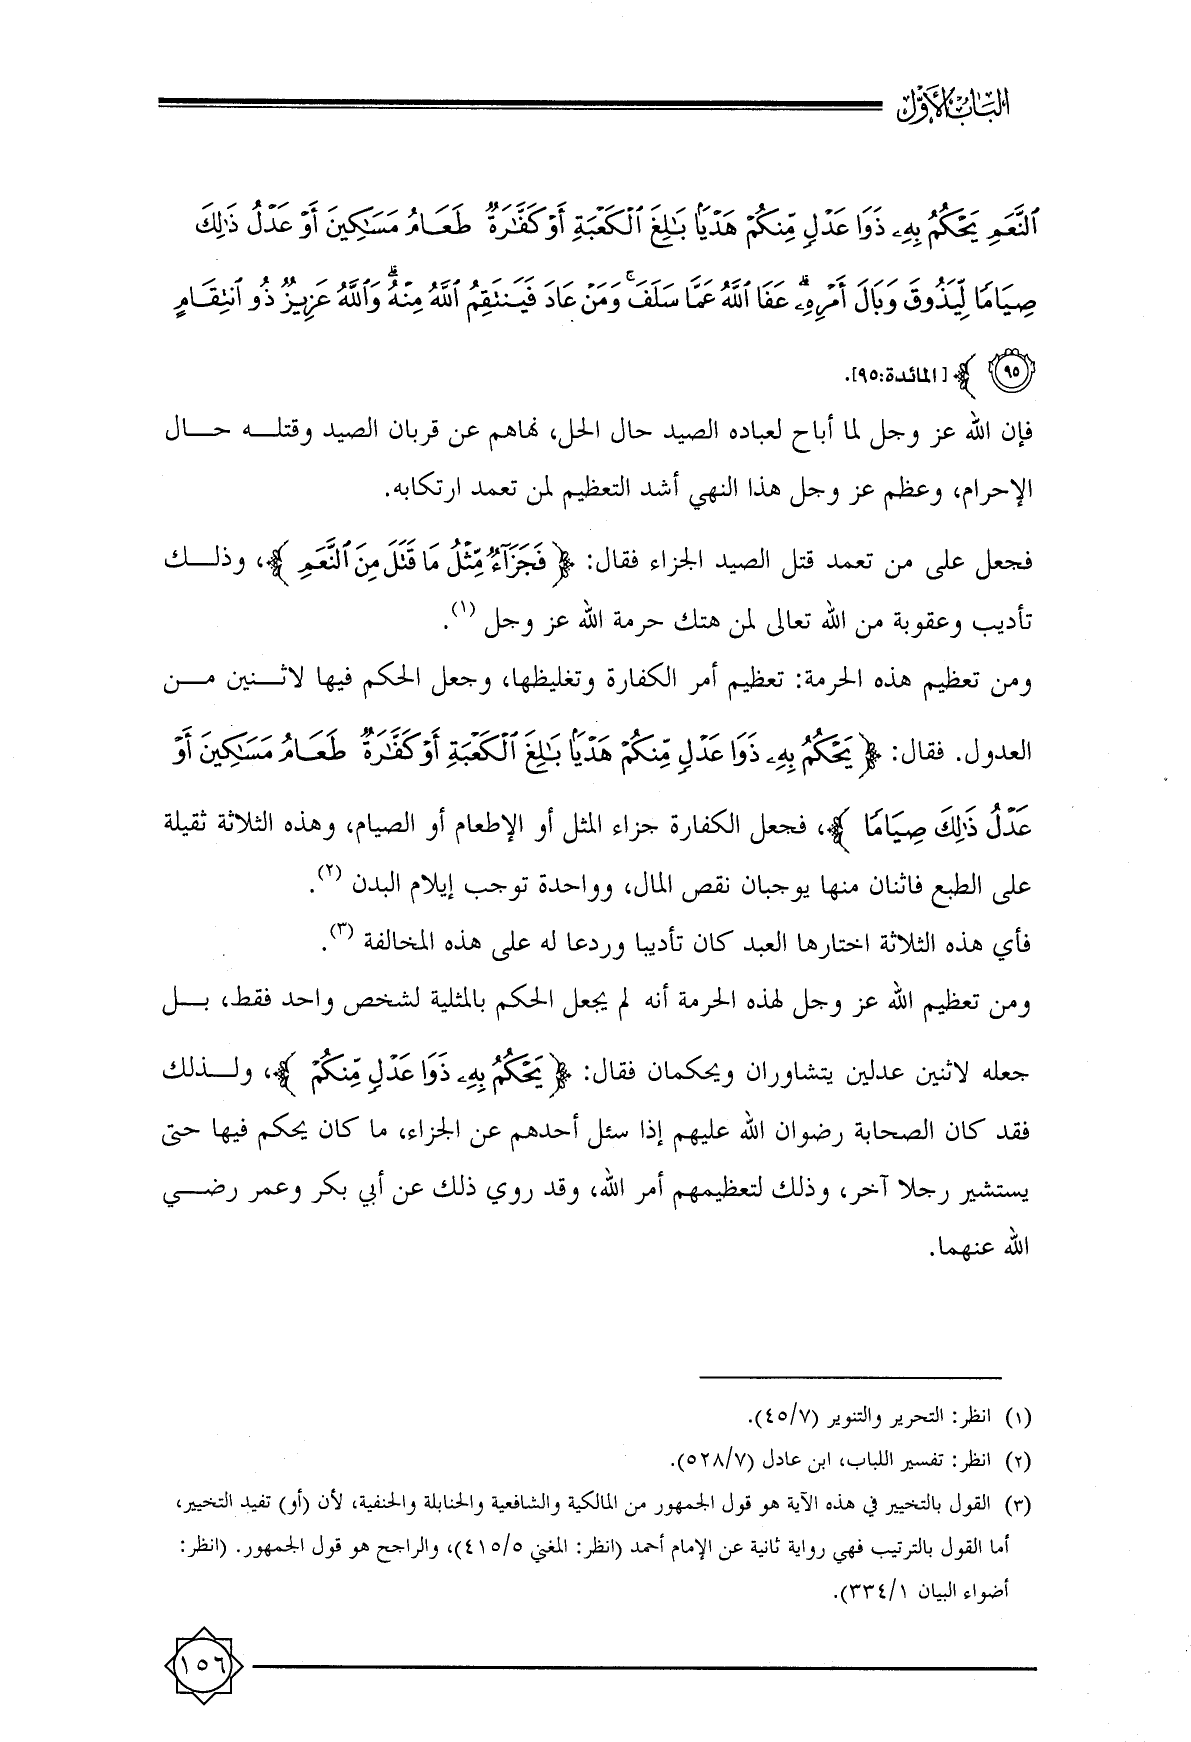 الباب الأول
ٱلنَّعَمِ يَحْكُمُ بِهِۦ ذَوَا عَدْلٍ مِّنكُمْ هَدْيًۢا بَٰلِغَ ٱلْكَعْبَةِ أَوْ كَفَّٰرَةٌ طَعَامُ مَسَٰكِينَ أَوْ عَدْلُ ذَٰلِكَ
صِيَامًا لِّيَذُوقَ وَبَالَ أَمْرِهِۦ ۗ عَفَا ٱللَّهُ عَمَّا سَلَفَ ۚ وَمَنْ عَادَ فَيَنتَقِمُ ٱللَّهُ مِنْهُ ۗ وَٱللَّهُ عَزِيزٌ ذُو ٱنتِقَامٍ
٩٥ ﴾ [المائدة:٩٥].
فإن الله عز وجل لما أباح لعباده الصيد حال الحل، نهاهم عن قربان الصيد وقتله حال
الإحرام، وعظم عز وجل هذا النهي أشد التعظيم لمن تعمد ارتكابه.
فجعل على من تعمد قتل الصيد الجزاء فقال: ﴿ فَجَزَآءٌ مِّثْلُ مَا قَتَلَ مِنَ ٱلنَّعَمِ ﴾، وذلك
تأديب وعقوبة من الله تعالى لمن هتك حرمة الله عز وجل (١).
ومن تعظيم هذه الحرمة: تعظيم أمر الكفارة وتغليظها، وجعل الحكم فيها لاثنين من
العدول. فقال: ﴿ يَحْكُمُ بِهِۦ ذَوَا عَدْلٍ مِّنكُمْ هَدْيًۢا بَٰلِغَ ٱلْكَعْبَةِ أَوْ كَفَّٰرَةٌ طَعَامُ مَسَٰكِينَ أَوْ
عَدْلُ ذَٰلِكَ صِيَامًا ﴾، فجعل الكفارة جزاء المثل أو الإطعام أو الصيام، وهذه الثلاثة ثقيلة
على الطبع فاثنان منها يوجبان نقص المال، وواحدة توجب إيلام البدن (٢).
فأي هذه الثلاثة اختارها العبد كان تأديبا وردعا له على هذه المخالفة (٣).
ومن تعظيم الله عز وجل لهذه الحرمة أنه لم يجعل الحكم بالمثلية لشخص واحد فقط، بل
جعله لاثنين عدلين يتشاوران ويحكمان فقال: ﴿ يَحْكُمُ بِهِۦ ذَوَا عَدْلٍ مِّنكُمْ ﴾، ولذلك
فقد كان الصحابة رضوان الله عليهم إذا سئل أحدهم عن الجزاء، ما كان يحكم فيها حتى
يستشير رجلا آخر، وذلك لتعظيمهم أمر الله، وقد روي ذلك عن أبي بكر وعمر رضي
الله عنهما.
(١) انظر: التحرير والتنوير (٤٥/٧).
(٢) انظر: تفسير اللباب، ابن عادل (٥٢٨/٧).
(٣) القول بالتخيير في هذه الآية هو قول الجمهور من المالكية والشافعية والحنابلة والحنفية، لأن (أو) تفيد التخيير،
أما القول بالترتيب فهي رواية ثانية عن الإمام أحمد (انظر: المغني ٤١٥/٥)، والراجح هو قول الجمهور. (انظر:
أضواء البيان ٣٣٤/١).
١٥٦